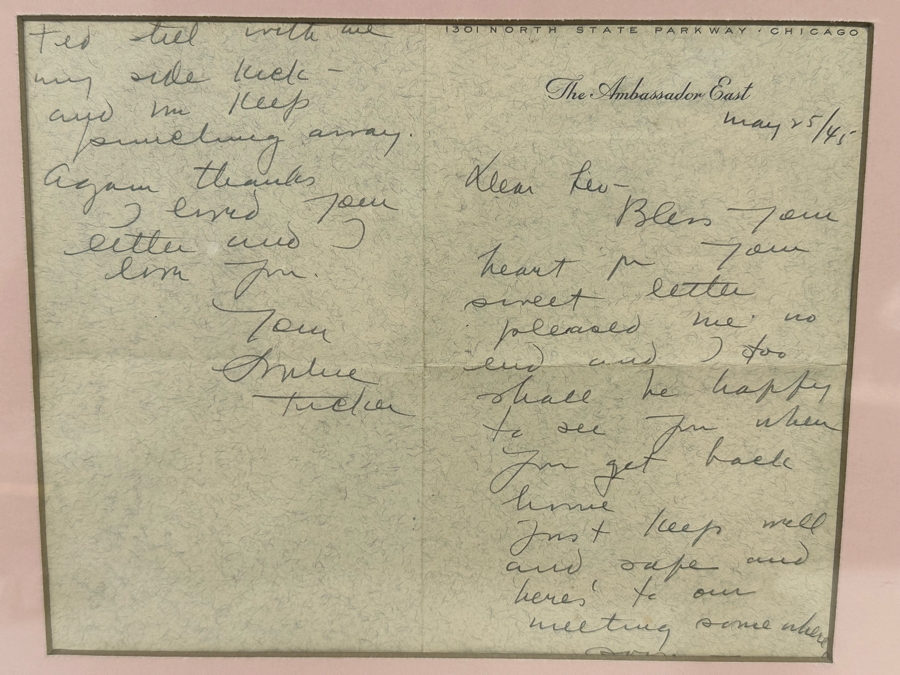 1301 NORTH STATE PARKWAY · CHICAGO
The Ambassador East
May 25/45
Dear Leo-
Bless your
heart for your
sweet letter
pleased me no
end and I too
shall be happy
to see you when
you get back
home
Just keep well
and safe and
here's to our
meeting somewhere
soon -
Ted still with me
my side kick -
and we keep
punching away.
Again thanks
I loved your
letter and I
love you.
Your
Sophie
Tucker